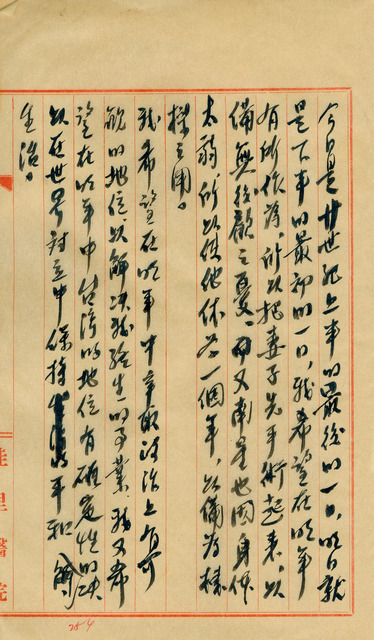 今日是廿世紀上半的最後的一日，明日就
是下半的最初的一日，我希望在明年
有所作為，所以把妻子先手術起來，以
備無後顧之憂，又南星也因身体
太弱，所以使他休学一個年，以備為樣
採之用。
我希望在明年中爭取政治上有可
能的地位，以解决我終生的事業，我又希
望在明年中台湾的地位有確定性的决
以在世界对立中保持生活的平和
生治。
佳里醫院
254